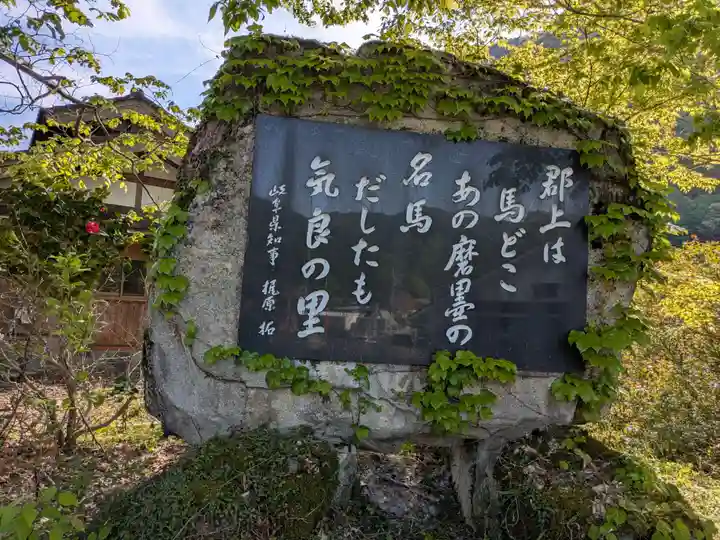 郡上は
馬どこ
あの磨墨の
名馬
だしたも
気良の里
岐阜県知事 梶原 拓